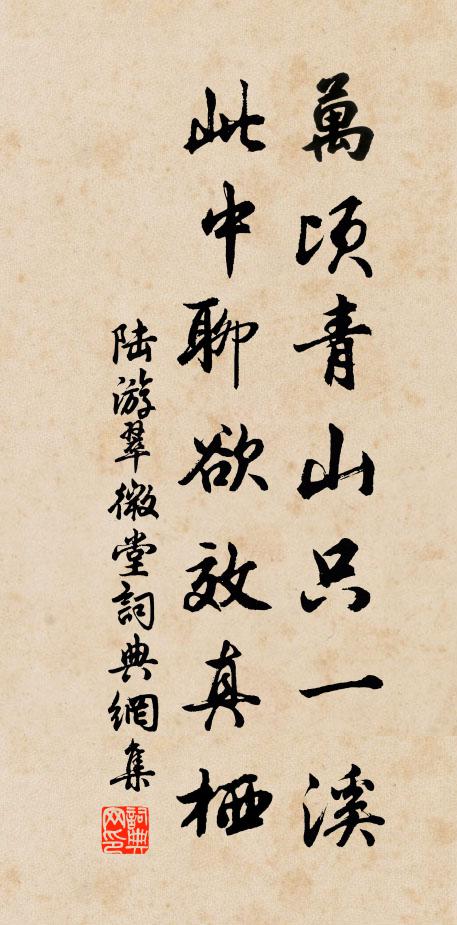 萬頃青山只一溪
此中聊欲效真栖
陆游翠微堂詞典網集
詞典網印